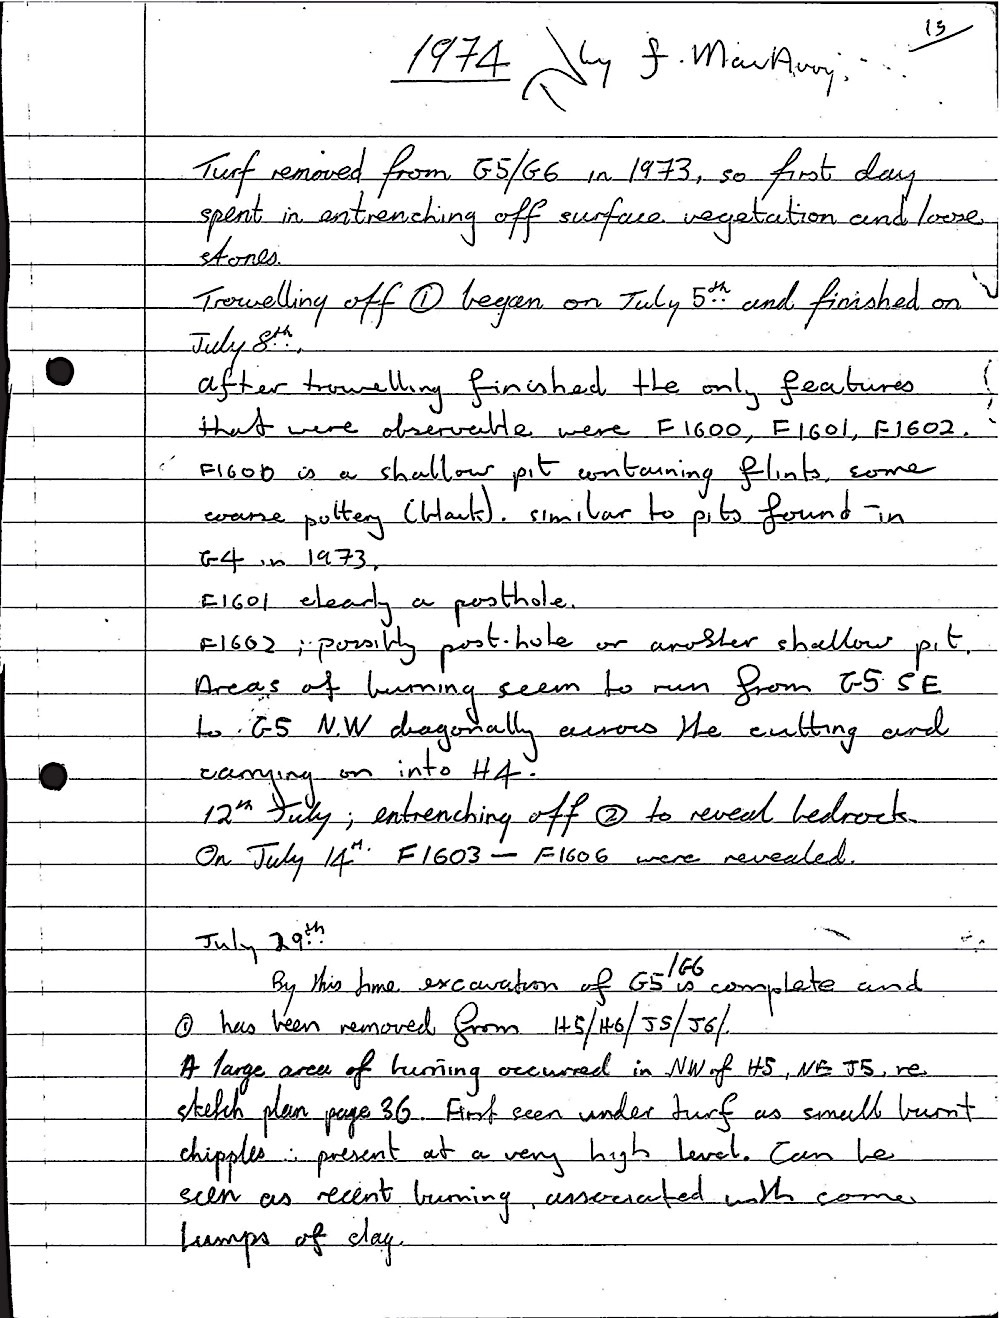 15
1974 by f. MacAvoy.
Turf removed from G5/G6 in 1973, so first day
spent in entrenching off surface vegetation and loose
stones.
Trowelling off ① began on July 5th and finished on
July 8th.
after trowelling finished the only features
that were observable were F1600, F1601, F1602.
F1600 is a shallow pit containing flints, some
coarse pottery (black). similar to pits found in
G4 in 1973.
F1601 clearly a posthole.
F1602 ; possibly post-hole or another shallow pit.
Areas of burning seem to run from G5 SE
to G5 N.W diagonally across the cutting and
carrying on into H4.
12th July ; entrenching off ② to reveal bedrock.
On July 14th. F1603 — F1606 were revealed.
July 29th
By this time excavation of G5/G6 is complete and
① has been removed from H5/H6/J5/J6/.
A large area of burning occurred in NW of H5, NE J5, re
sketch plan page 36. First seen under turf as small burnt
chipples ∴ present at a very high level. Can be
seen as recent burning, associated with some
lumps of clay.